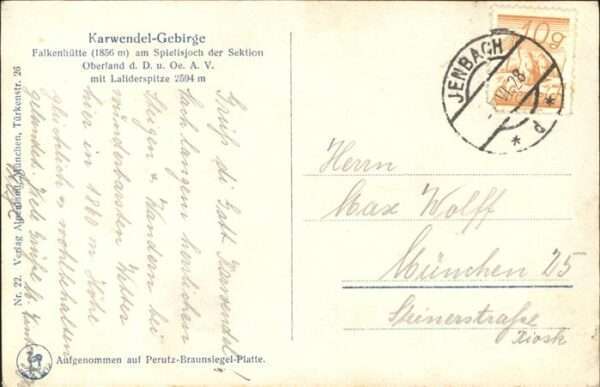 Karwendel-Gebirge
Falkenhütte (1856 m) am Spielisjoch der Sektion
Oberland d. D. u. Oe. A. V.
mit Laliderspitze 2594 m
Grüß di Gott Karwendel!
Nach langem herrlichen
Steigen & Wandern bei
wunderbarsten Wetter
hier in 1860 m Höhe
glücklich & wohlbehalten
gelandet. Viele Grüße
Nr. 22. Verlag München, Türkenstr. 26
Aufgenommen auf Perutz-Braunsiegel-Platte.
10g
JENBACH
VI.28
Herrn
Max Wolff
München 25
Steinerstraße
Kiosk